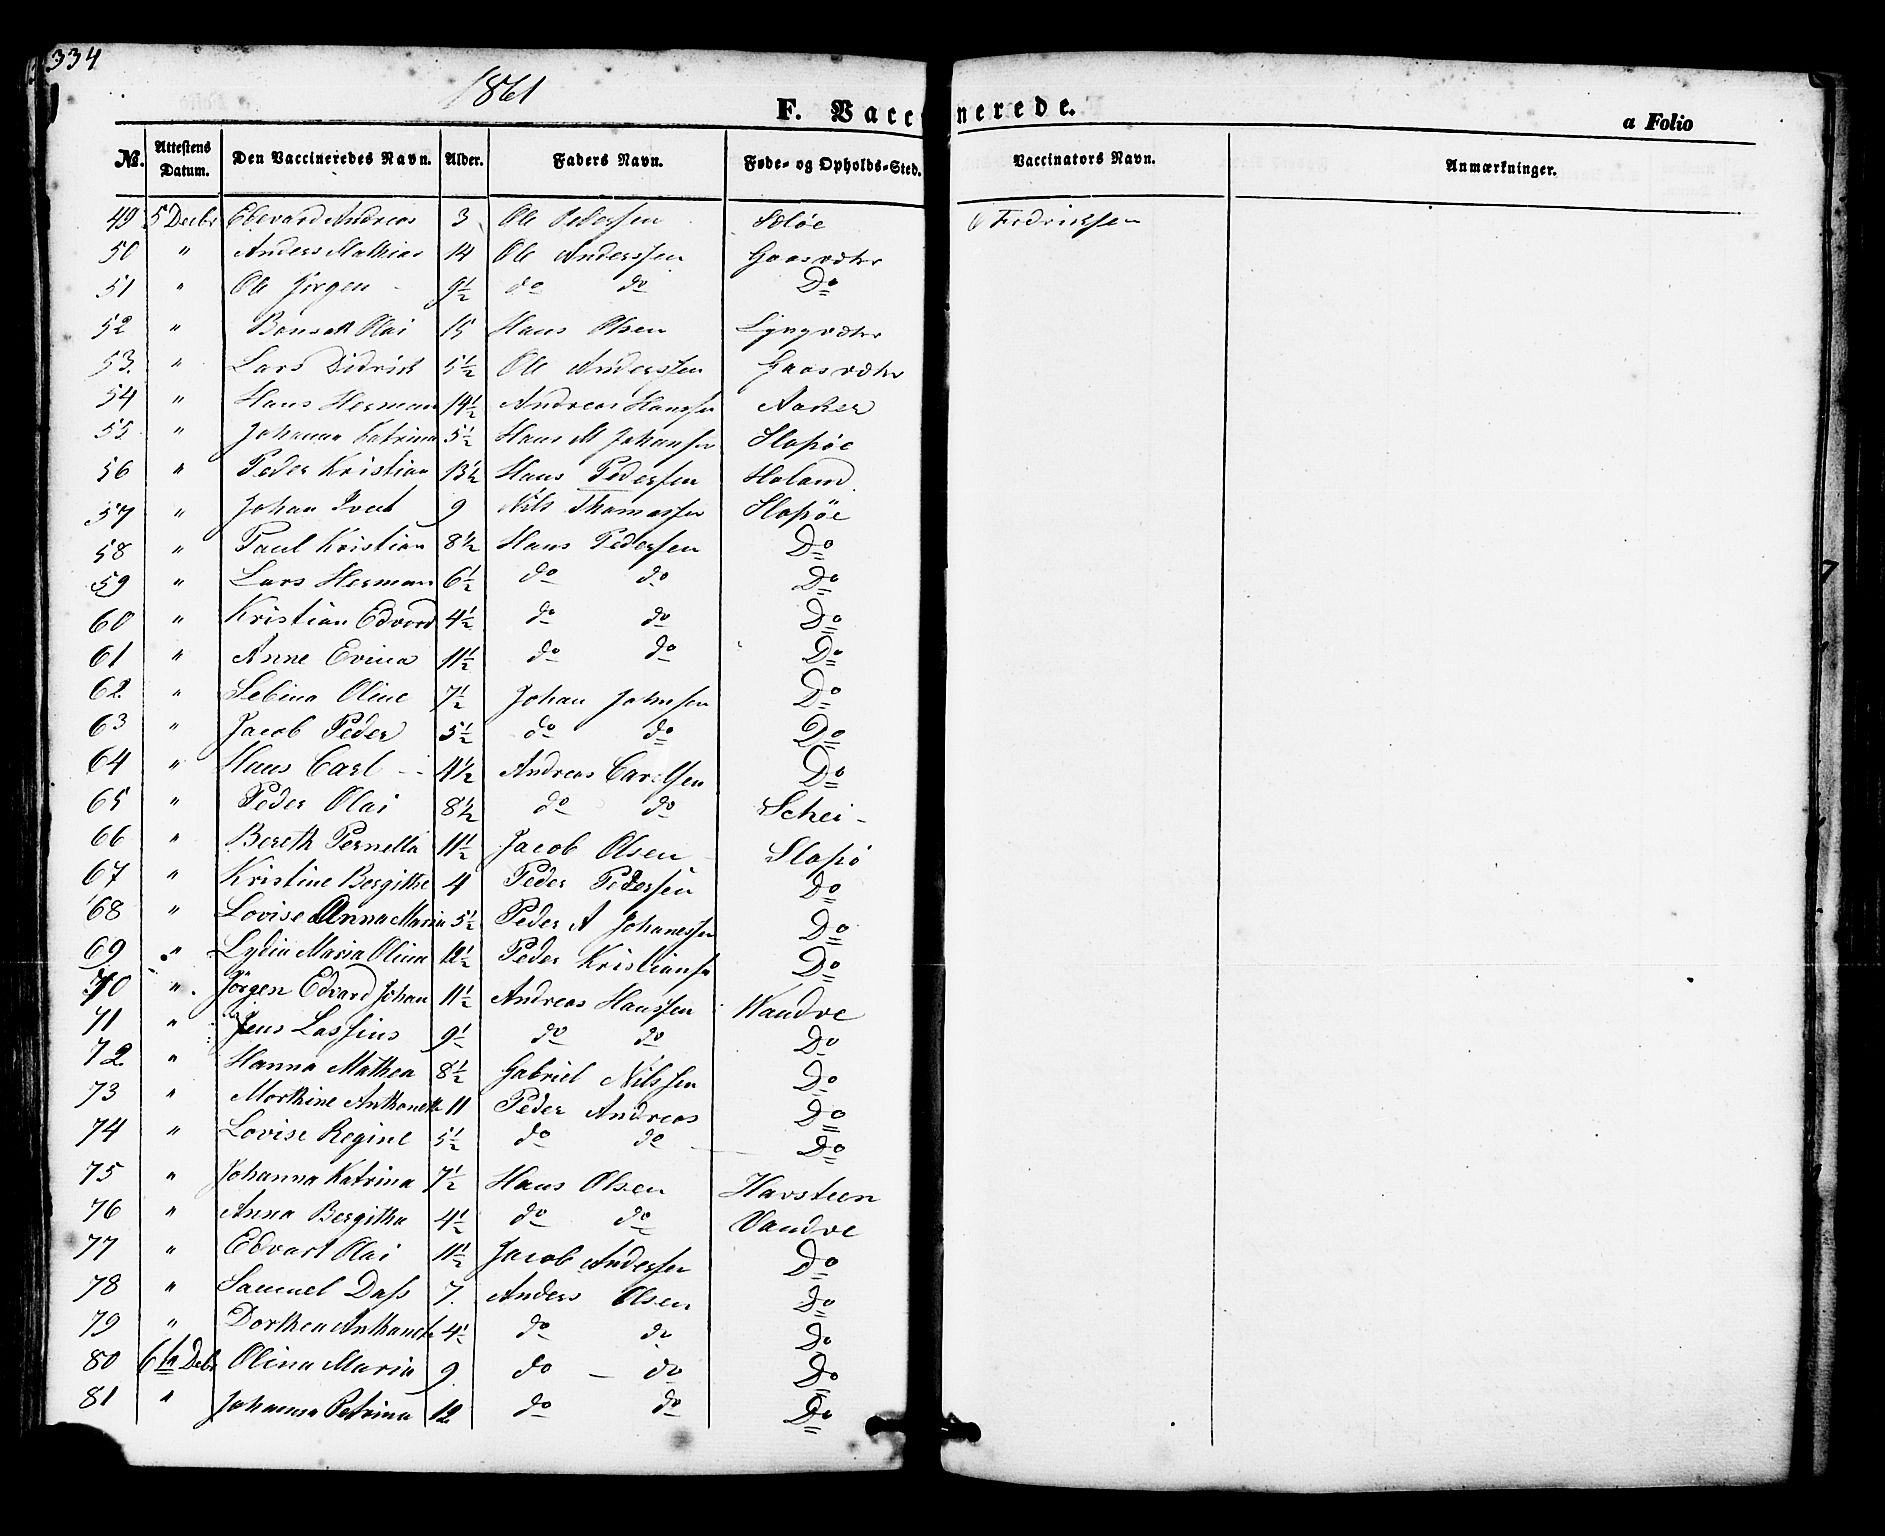 334
1861
F. Vaccinerede.
a Folio
No. Attestens Datum. Den Vaccineredes Navn. Alder. Faders Navn. Føde- og Opholds-Sted. Vaccinators Navn. Anmærkninger.
49 5 Decbr Edevard Andreas 3 Ole Pedersen Fredriksen
50 " Anders Mathias 14 Ole Anderssen Gaasvær
51 " Ole Jørgen 9½ do do Do
52 " Olai 15 Hans Olsen Lyngvær
53. " Lars Didrick 5½ Ole Anderssen Gaasvær
54 " Hans Herman 14½ Andreas Hanssen Aaker
55 " Johanna Catrina 5½ Hans M Johansen Slapøe
56 " Peder Kristian 13½ Hans Pedersen Holand
57 " Johan 9 Nils Thomassen Slapøe
58 " Paul Kristian 8½ Hans Pedersen Do
59 " Lars Herman 6½ do do Do
60 " Kristian Edvard 4½ do do Do
61 " Anne Evina 11½ do do Do
62 " Sebina Oline 7½ Johan Johnsen Do
63 " Jacob Peder 5½ do do Do
64 " Hans Carl 4½ Andreas Carlsen Do
65 " Peder Olai 8½ do do Schei
66 " Bereth Pernella 11½ Jacob Olsen Slapø
67 " Kristine Bergithe 4 Peder Pedersen Do
68 " Lovise Anna Maria 5½ Peder A Johanessen Do
69 " Lydia Maria Olina 12½ Peder Kristiansen Do
70 " Jørgen Edvard Johan 11½ Andreas Hanssen Wandve
71 " Jens Lassius 9½ do do Do
72 " Hanna Mathea 8½ Gabriel Nilssen Do
73 " Morthine Anthonette 11 Peder Andreas Do
74 " Lovise Regine 5½ do do Do
75 " Johanna Katrina 7½ Hans Olsen Havsteen
76 " Anna Bergitha 4½ do do Vandve
77 " Edvart Olai 11½ Jacob Andersen Do
78 " Samuel Dass 7. Anders Olsen Do
79 " Dorthea Anthonette 4½ do do Do
80 6te Debr Olina Maria 9 do do Do
81 " Johanna Petrina 12 do do Do